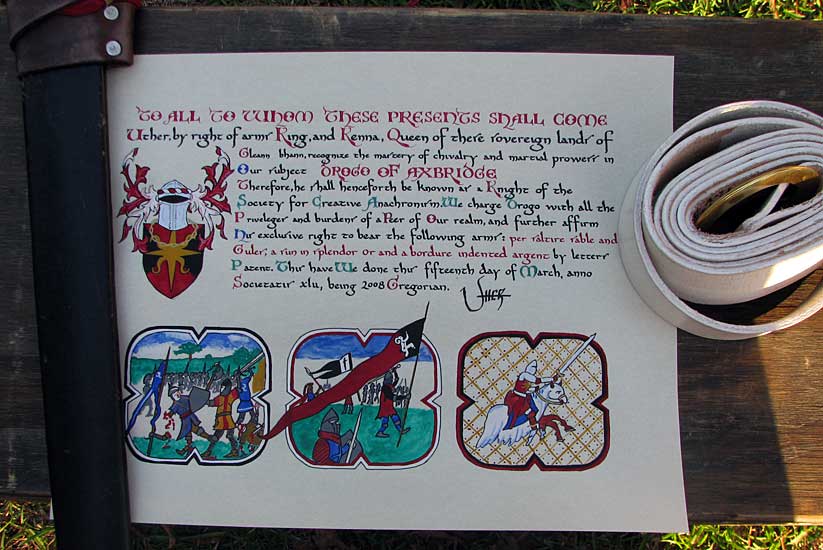 TO ALL TO WHOM THESE PRESENTS SHALL COME
Uther, by right of arms King, and Kenna, Queen of these sovereign lands of
Gleann Abhann, recognize the mastery of chivalry and martial prowess in
Our subject DROGO OF AXBRIDGE
Therefore, he shall henceforth be known as a Knight of the
Society for Creative Anachronism. We charge Drogo with all the
Privileges and burdens of a Peer of Our realm, and further affirm
his exclusive right to bear the following arms: per saltire sable and
Gules; a sun in splendor or and a bordure indented argent by letters
Patent. This have We done this fifteenth day of March, anno
Societatis xlii, being 2008 Gregorian. Uther